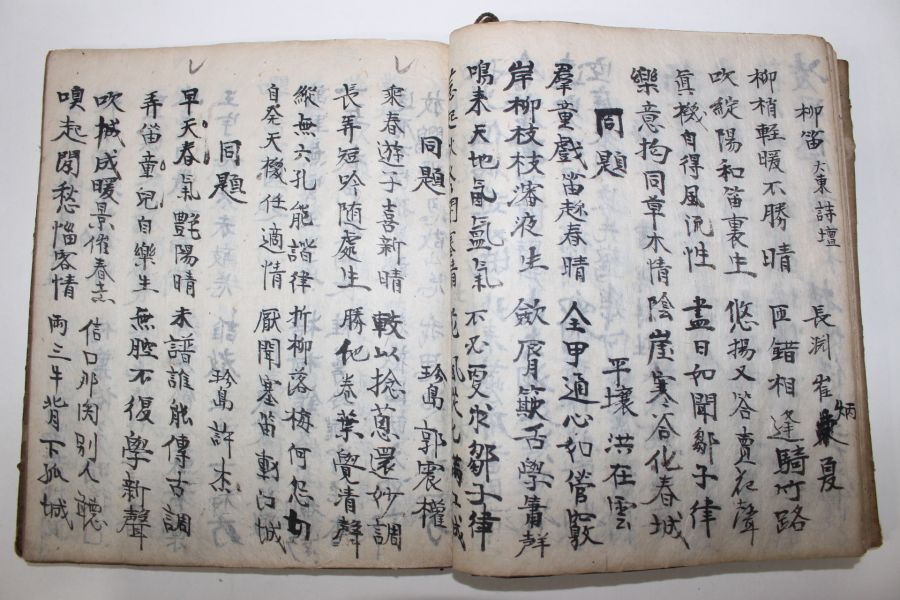 柳笛 大東詩壇 長淵 崔炳夏
柳梢輕暖不勝晴 匝錯相逢騎竹路
吹綻陽和笛裏生 悠揚又答賣衣聲
眞機自得風流性 盡日如聞鄒子律
樂意拘同草木情 陰崖寒谷化春城
同題 平壤 洪在雲
羣童戲笛趂春晴 全甲通心如管竅
岸柳枝枝瀋夜生 斂唇簸舌學簫聲
鳴來天地氤氳氣 不必更求鄒子律
同題 珍島 郭震權
乘春遊子喜新晴 較似捻蔥還妙調
長弄短吟随處生 勝他卷葉覺清聲
縱無六孔能諧律 折柳落梅何怨切
自發天機任適情 厭聞塞笛動江城
同題 珍島 許杰
早天春氣艷陽晴 未譜誰能傳古調
弄笛童兒自樂生 無腔不復學新聲
吹城成暖景催春去 信口那関别人聽
嗅起閑愁惱客情 兩三牛背下孤城